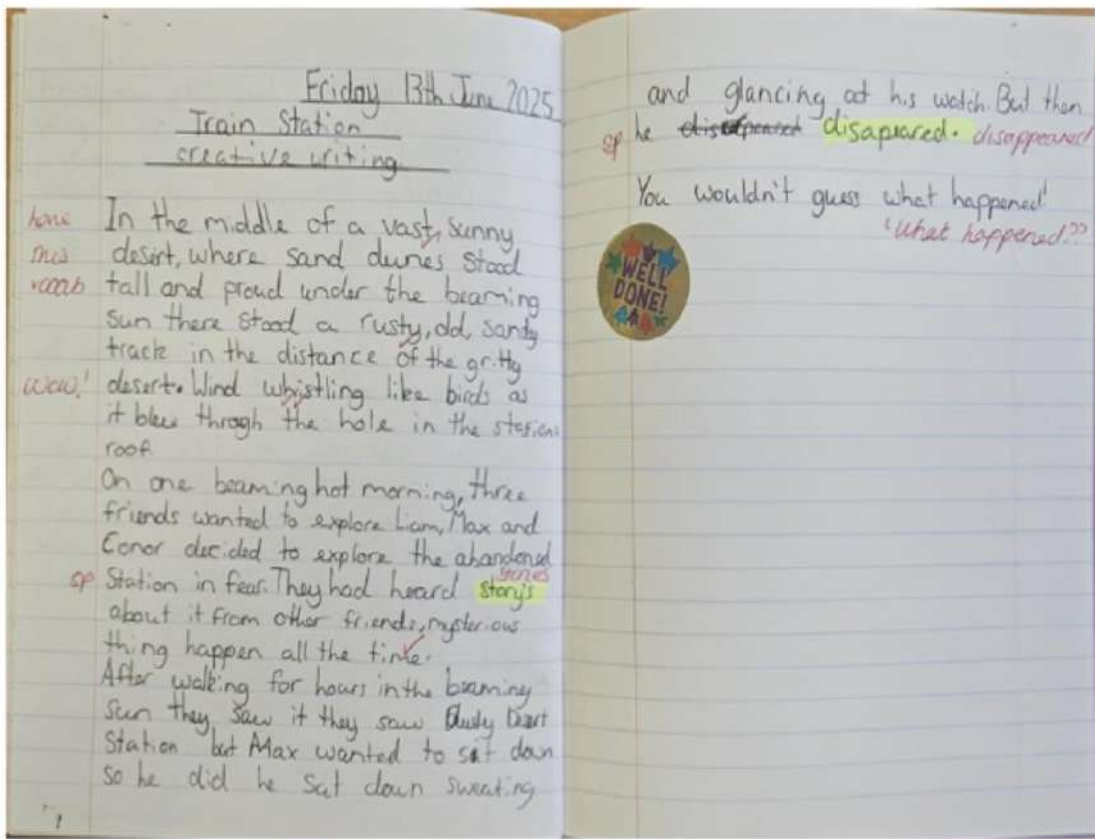 Friday 13th June 2025
Train Station
creative writing.
love In the middle of a vast, sunny
this desert, where sand dunes stood
vocab tall and proud under the beaming
sun there stood a rusty, old, sandy
track in the distance of the gritty
wow! desert. Wind whistling like birds as
it blew throgh the hole in the station
roof.
On one beaming hot morning, three
friends wanted to explore Liam, Max and
Conor decided to explore the abandoned
stories
sp Station in fear. They had heard story's
about it from other friends, mysterious
thing happen all the time.
After walking for hours in the beaming
sun they saw it they saw Dusty Desert
Station but Max wanted to sit down
so he did he sat down sweating
and glancing at his watch. But then
sp he disapeared. disappeared
You wouldn't guess what happened!
'What happened??
WELL
DONE!